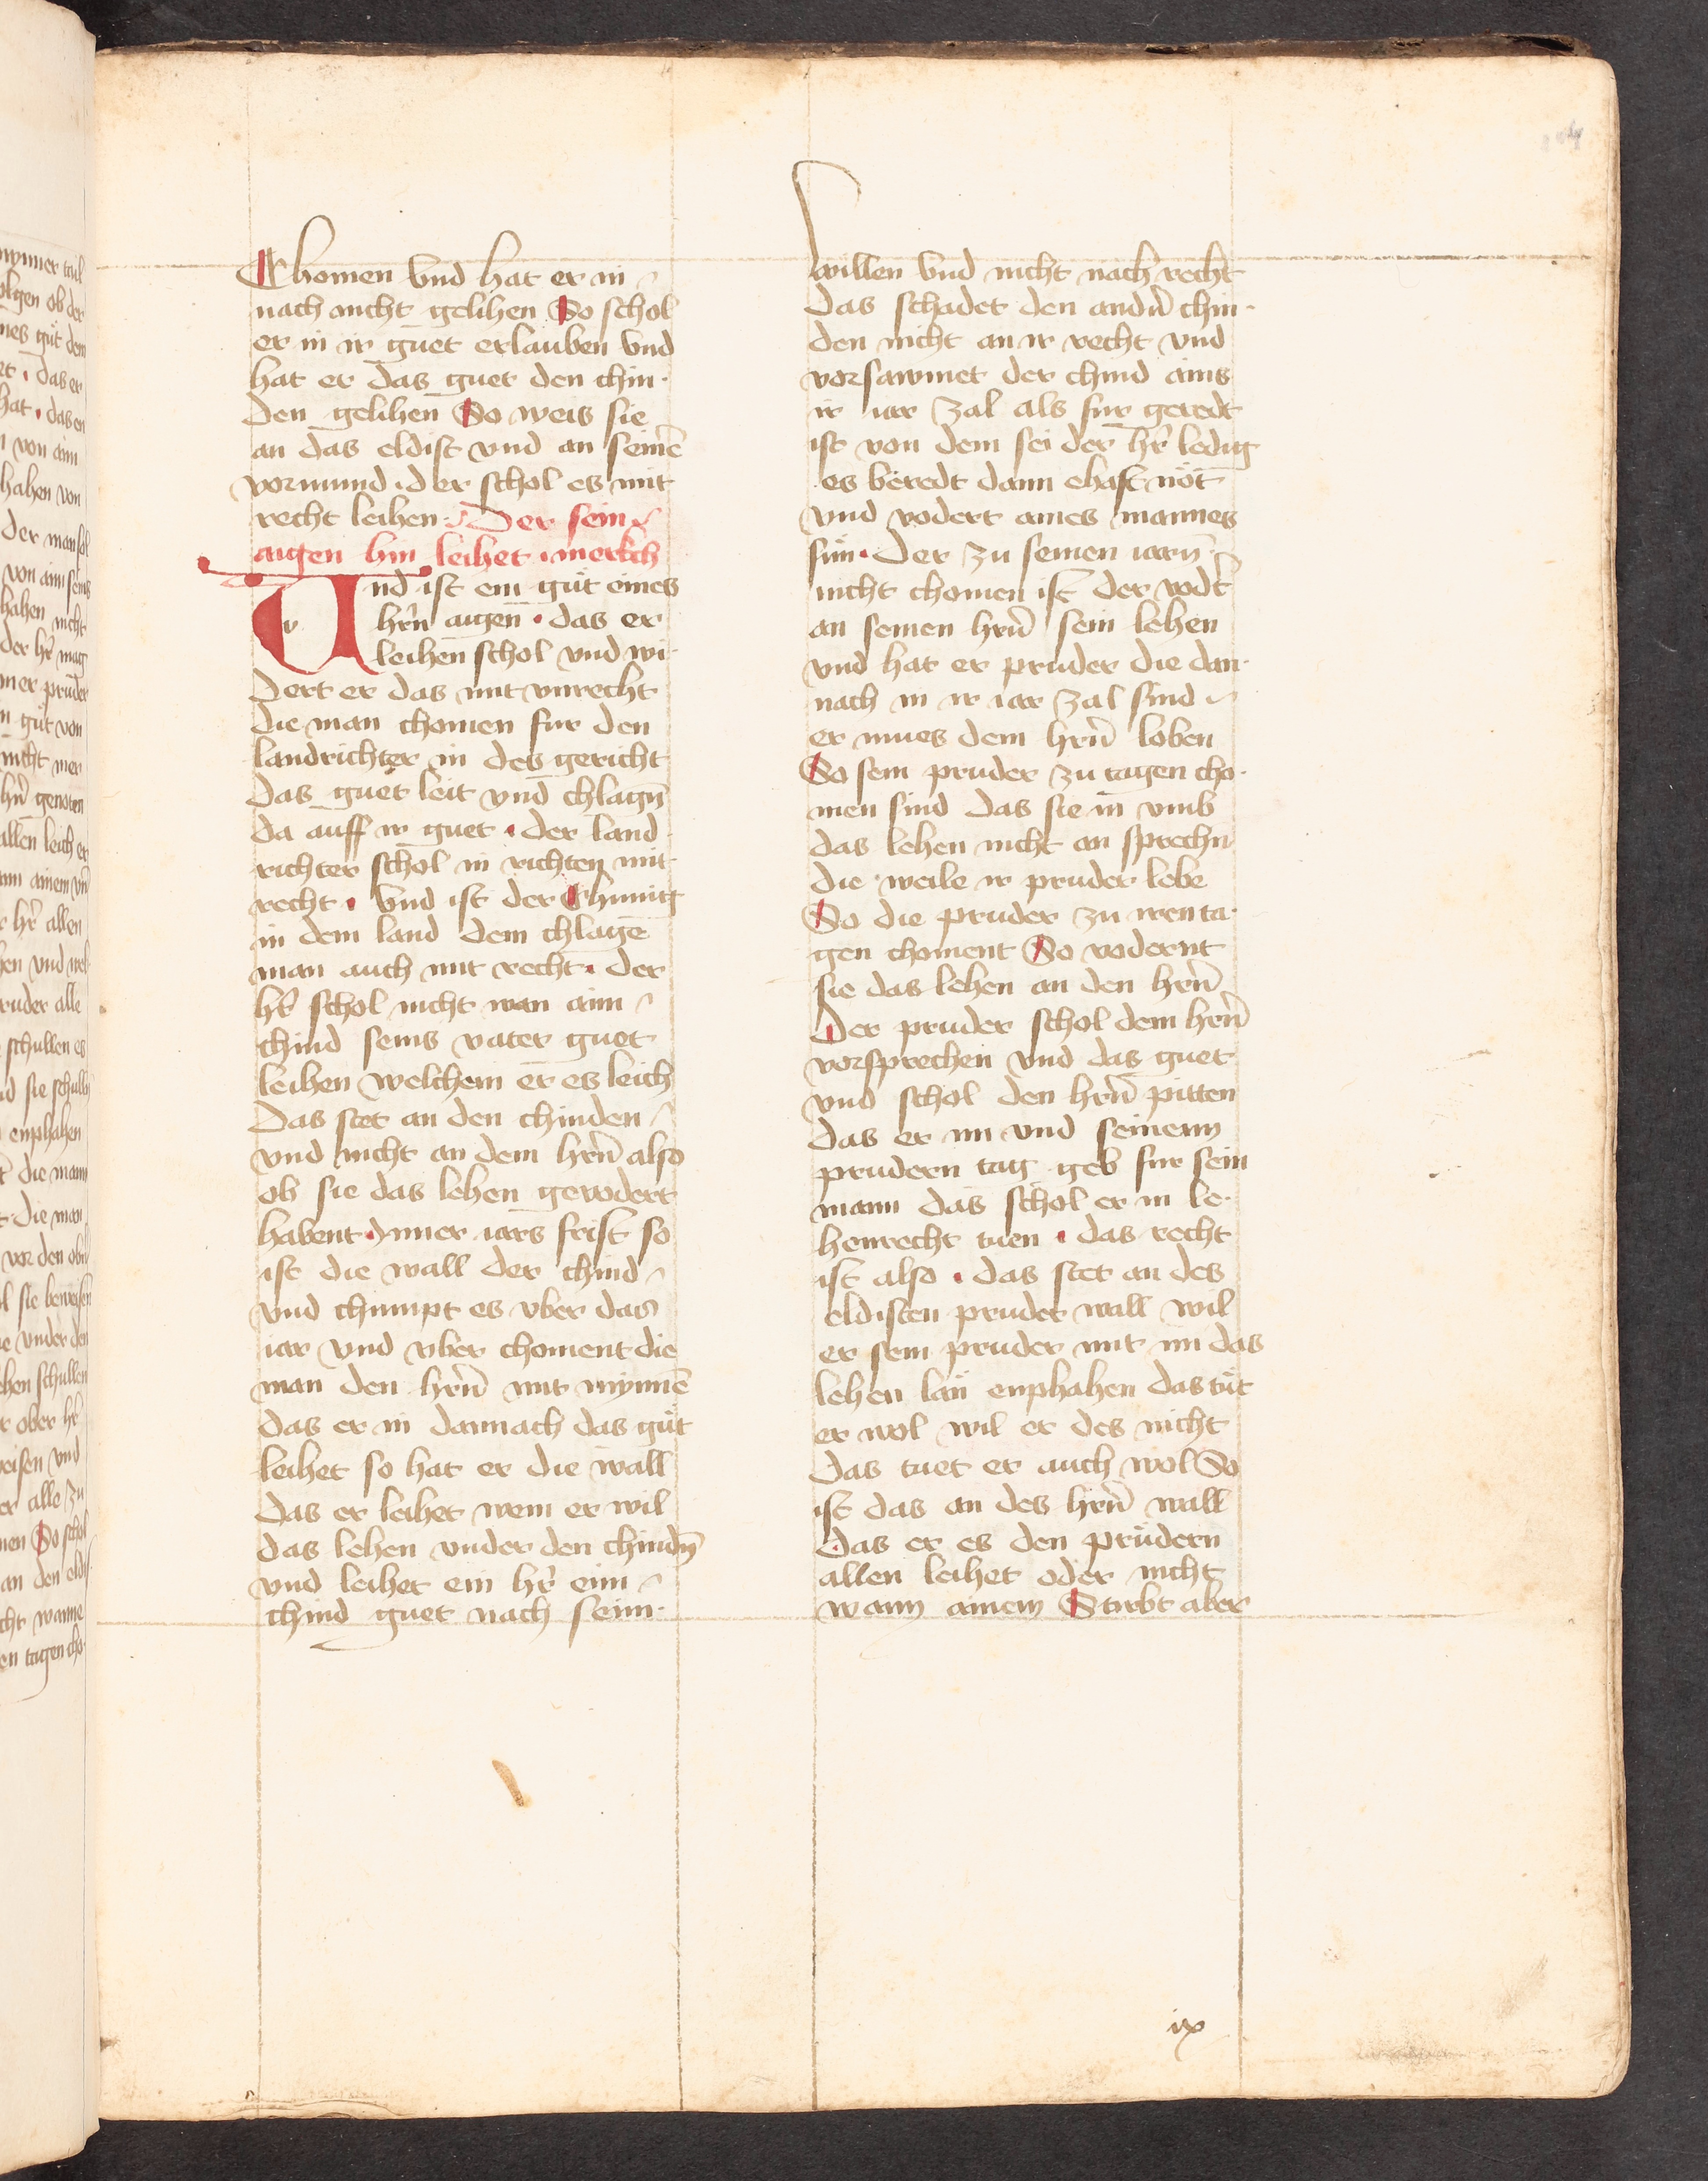 Chomen vnd hat er in
nach nicht gelihen So schol
er in ir guet erlauben vnd
hat er das guet den chin-
den gelihen So weis sie
an das eldist vnd an seinē
vormund · der schol es mit
recht leihen · Der sein
aigen hin leihet · merkch
Vnd ist ein gůt eines
hr̄n aigen̄ · das er
leihen schol vnd wi-
dert er das mit vnrecht
die man chomen fur den
landrichter in des gericht
das guet leit vnd chlagn̄
da auff ir guet · der land
richter schol in richten mit
recht · vnd ist der Chunig
in dem land dem chlagē
man auch mit recht · der
hr̄ schol nicht wan aim
chind seins vater guet
leihen welchem er es leich
Das stet an den chinden
vnd nicht an dem hrn̄ also
ob sie das lehen gevodert
habent · Inner iars frist so
ist die wall der chind
vnd chumpt es vber das
iar vnd vber choment die
man den hrn̄ mit mynnē
das er in dannach das gůt
leihet so hat er die wall
das er leihet wem er wil
das lehen vnder den chindn̄
vnd leihet ein hr̄ eim
chind guet nach seim
willen vnd nicht nach recht
das schadet den andn̄ chin-
den nicht an ir recht vnd
vorsawmet der chind ains
ir iar zal als fur geredt
ist von dem sei der hr̄ ledig
es beredt dann ehaft nöt
vnd vodert aines mannes
sün · Der zu seinen iarn̄
nicht chomen ist der vodt̄
an seinen hrn̄ sein lehen
vnd hat er pruder die dan-
nach in ir iar zal sind
er mues dem hrn̄ loben
So sein pruder zu tagen cho-
men sind das sie in vmb
das lehen nicht an sprechn̄
die weile ir pruder lebe
So die pruder zu iren ta-
gen choment So vodernt
sie das lehen an den hrn̄
Der pruder schol dem hrn̄
vorsprechen vnd das guet
vnd schol den hrn̄ pitten
das er im vnd seinenn
prudern tag geb fur sein
mann das schol er in le-
henrecht tuen · das recht
ist also · das stet an des
eldisten pruder wall wil
er sein pruder mit im das
lehen lan enphahen das tůt
er wol wil er des nicht
das tuet er auch wol So
ist das an des hrn̄ wall
das er es den prüdern
allen leihet oder nicht
wann ainem Stirbt aber
ix